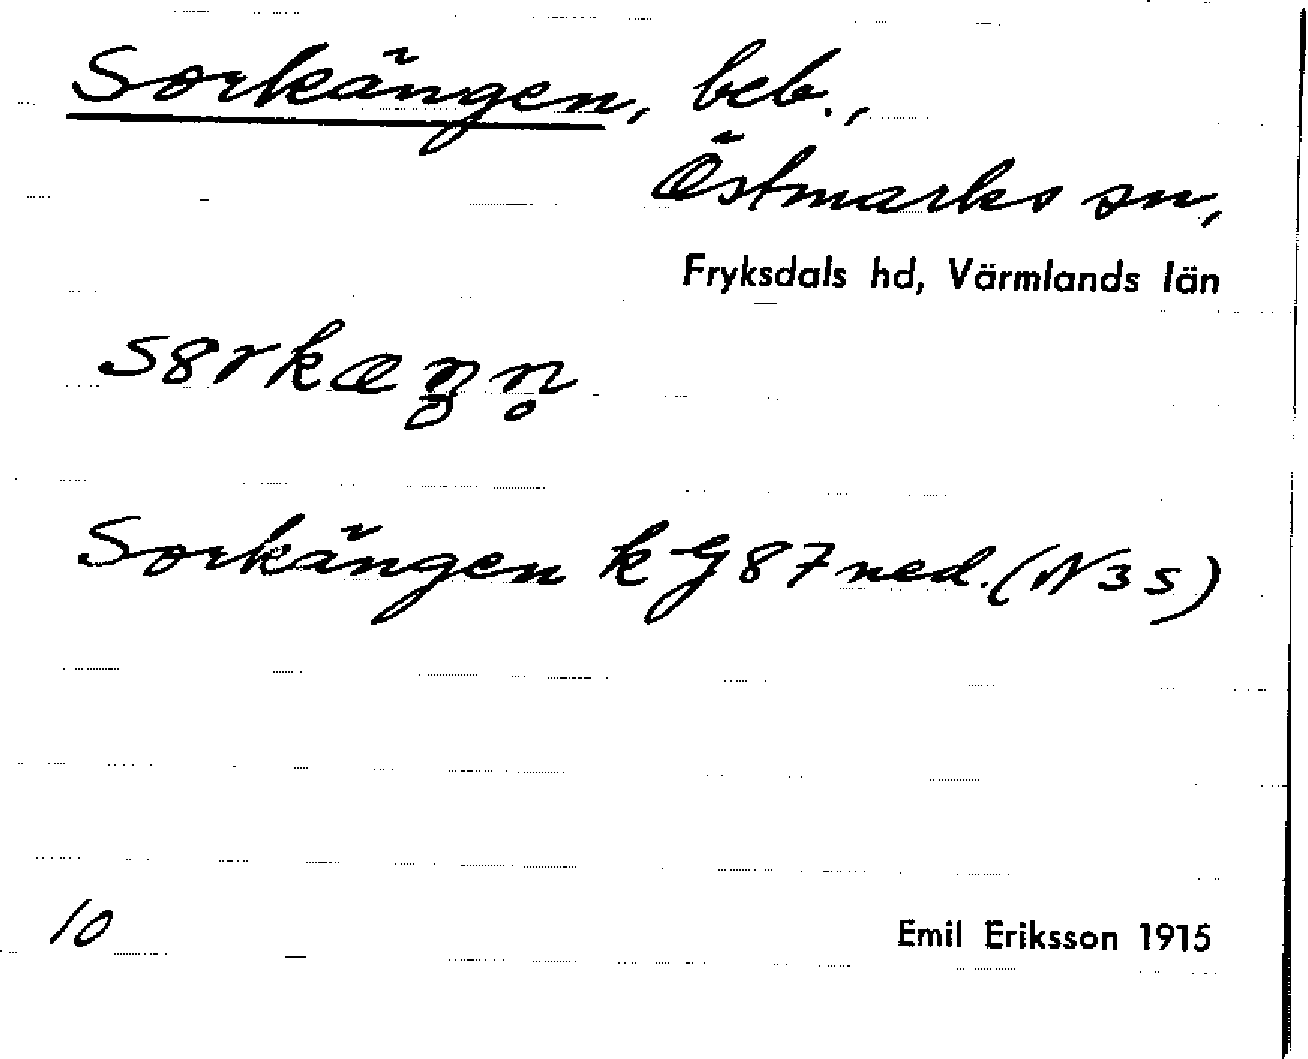 Sorkängen, beb.,
Östmarks sn,
Fryksdals hd, Värmlands län
s8rkæŋn̥
Sorkängen k G 87 ned. (N3s)
10
Emil Eriksson 1915